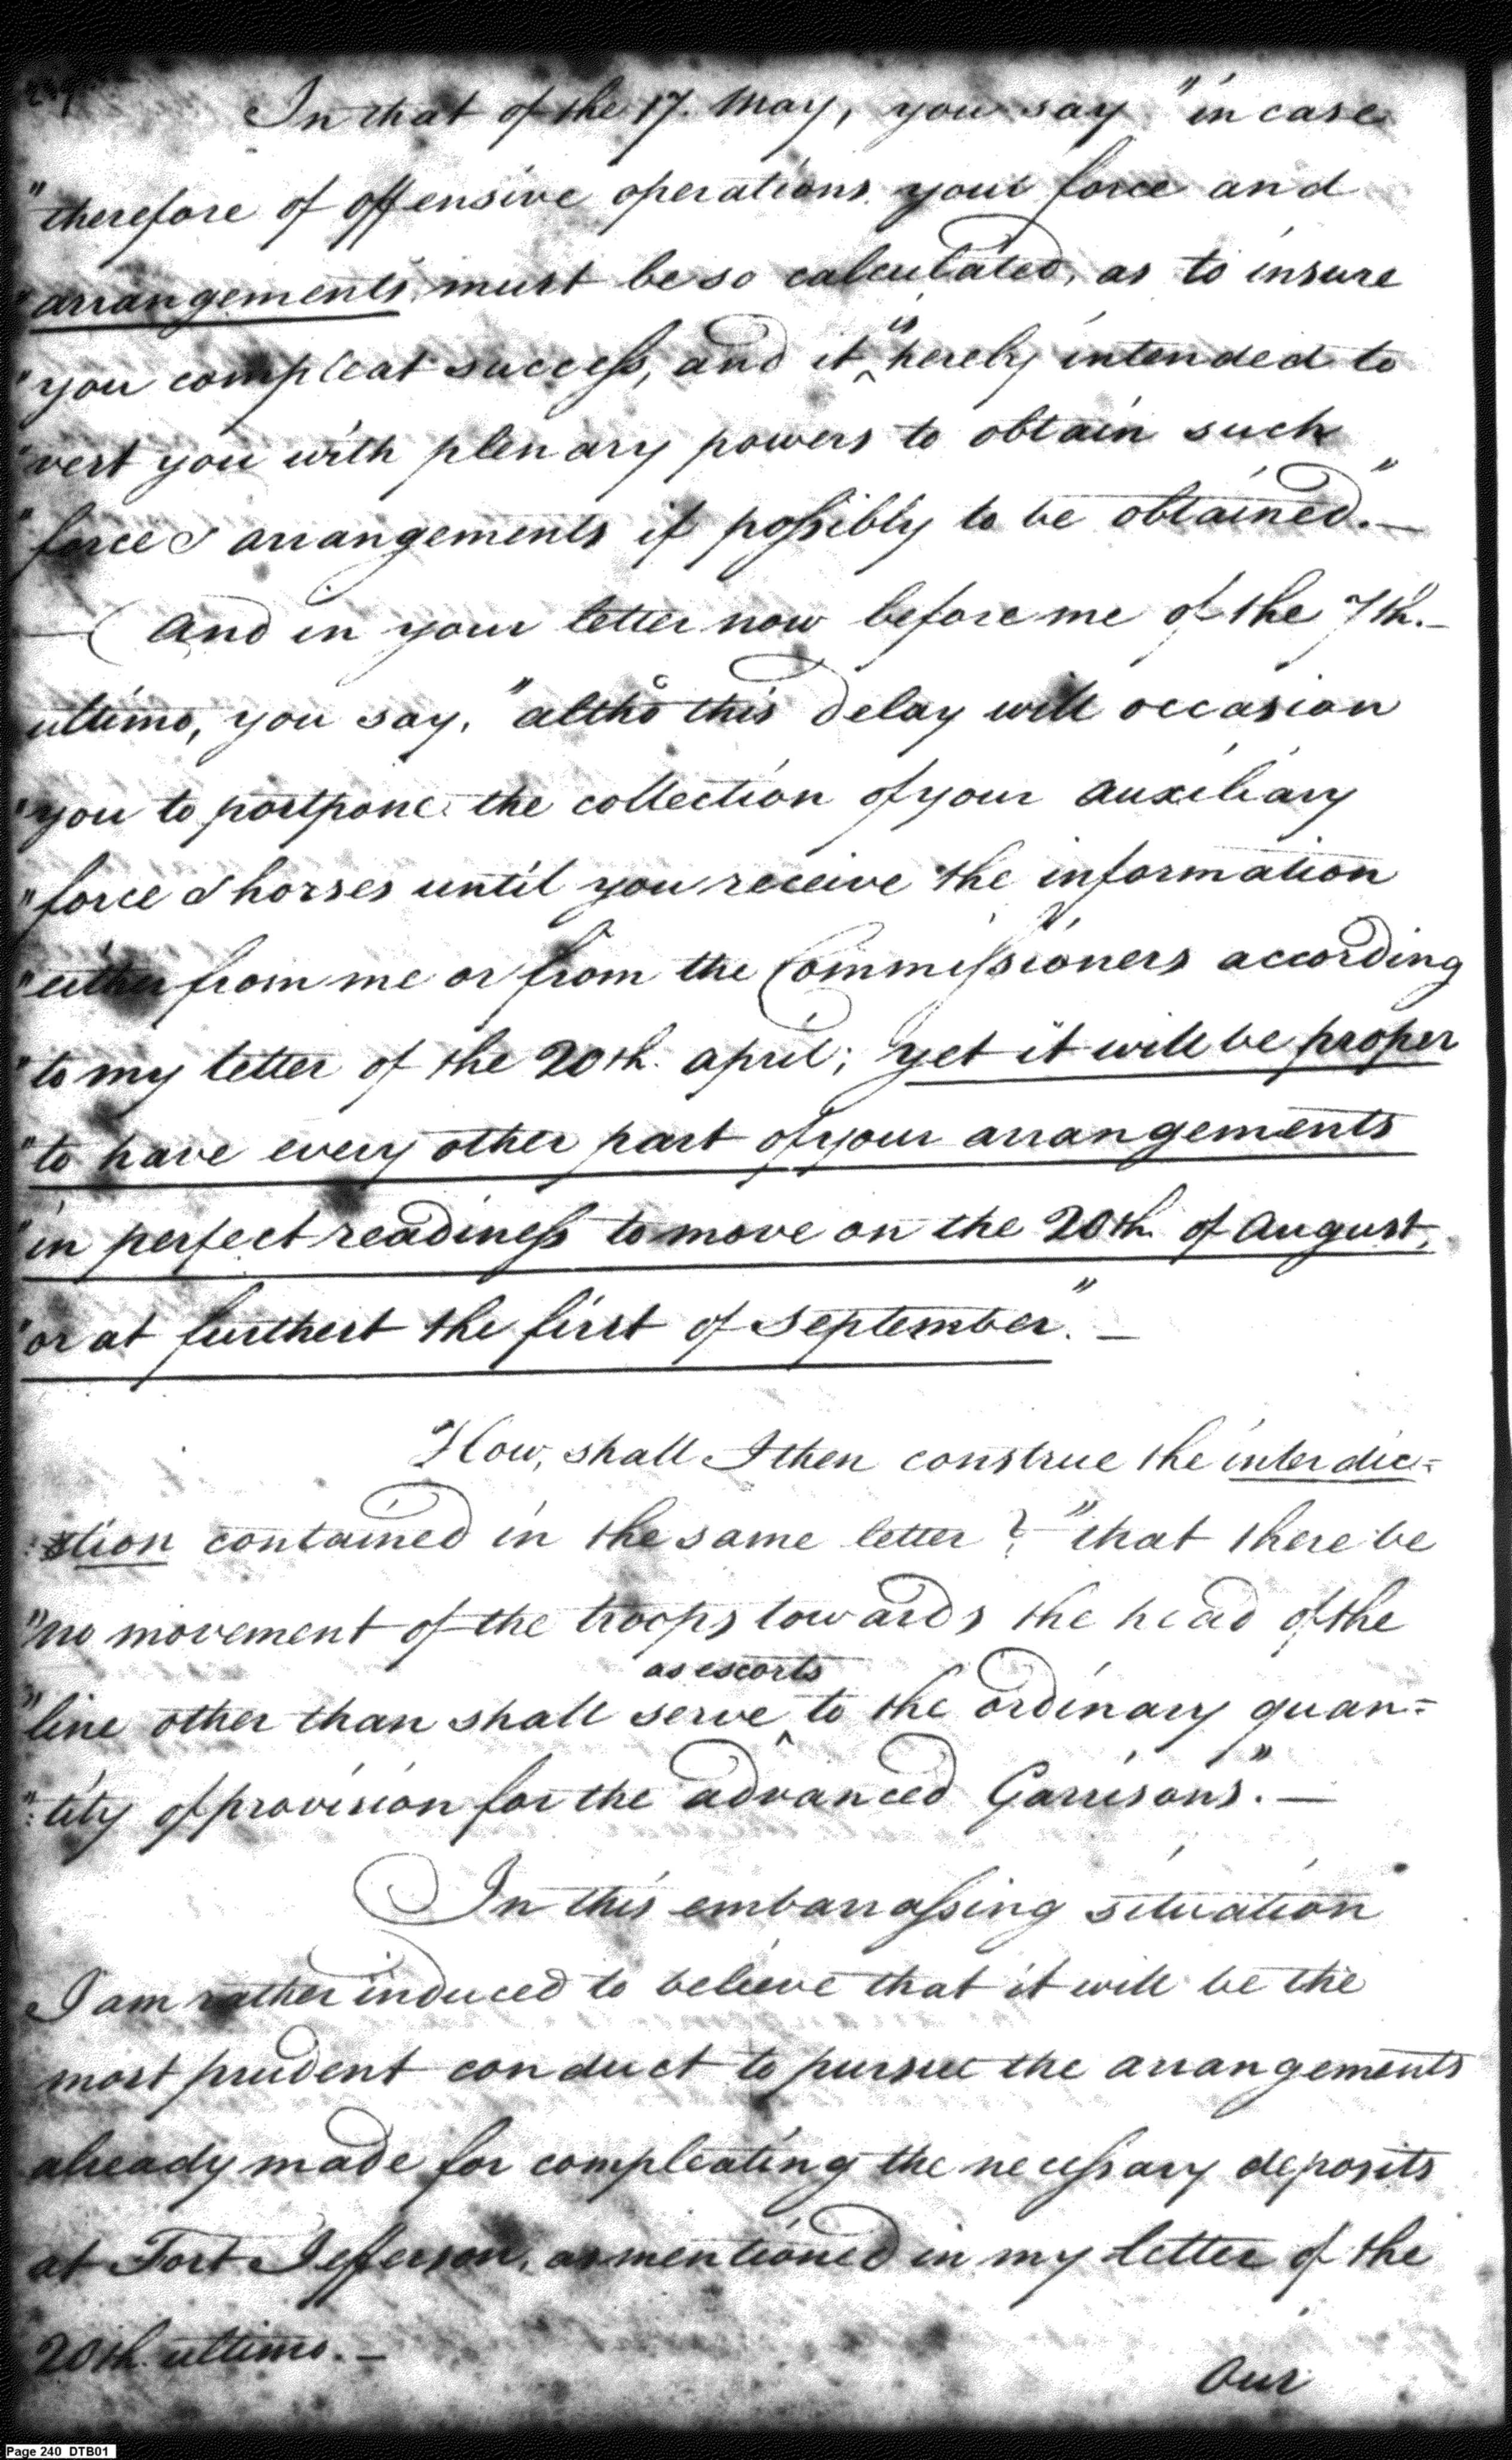 In that of the 17. May, you say "in case
"therefore of offensive operations your force and
"arrangements must be so calculated, as to insure
"you compleat success, and it is hereby intended to
"vest you with plenary powers to obtain such
"force & arrangements if possibly to be obtained."—
— And in your letter now before me of the 7th.—
ultimo, you say, "altho' this delay will occasion
"you to postpone the collection of your auxiliary
"force & horses until you receive the information
"either from me or from the Commissioners according
"to my letter of the 20th. april; yet it will be proper
"to have every other part of your arrangements
"in perfect readiness to move on the 20th of August,
"or at furthest the first of September".—
How, shall I then construe the interdic=
:tion contained in the same letter? "that there be
"no movement of the troops towards the head of the
"line other than shall serve as escorts to the ordinary quan=
":tity of provision for the advanced Garrisons".—
In this embarrassing situation
I am rather induced to believe that it will be the
most prudent conduct to pursue the arrangements
already made for compleating the necessary deposits
at Fort Jefferson, as mentioned in my letter of the
20th. ultimo.—
Our
Page 240 DTB01